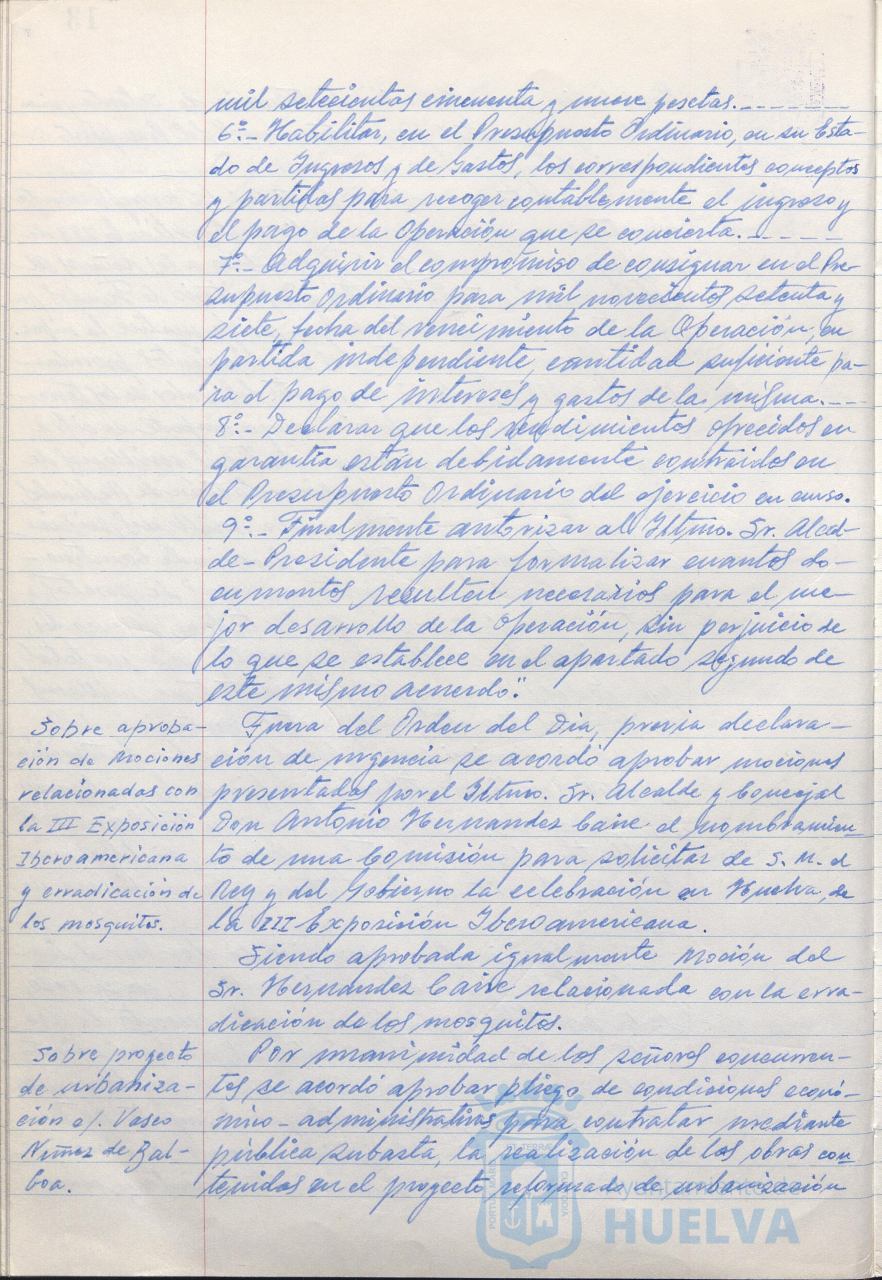 mil setecientas cincuenta y nueve pesetas.
6º.- Habilitar, en el Presupuesto Ordinario, en su Esta-
do de Ingresos y de Gastos, los correspondientes conceptos
y partidas para recoger contablemente el ingreso y
el pago de la Operación que se concierta.
7º.- Adquirir el compromiso de consignar en el Pre-
supuesto Ordinario para mil novecientos setenta y
siete, fecha del vencimiento de la Operación, en
partida independiente, cantidad suficiente pa-
ra el pago de intereses y gastos de la misma.
8º.- Declarar que los rendimientos ofrecidos en
garantía están debidamente contraidos en
el Presupuesto Ordinario del ejercicio en curso.
9º.- Finalmente autorizar al Iltmo. Sr. Alcal-
de-Presidente para formalizar cuantos do-
cumentos resulten necesarios para el me-
jor desarrollo de la operación, sin perjuicio de
lo que se establece en el apartado segundo de
este mismo acuerdo".
Sobre aproba-
ción de Mociones
relacionadas con
la III Exposición
Iberoamericana
y erradicación de
los mosquitos.
Fuera del Orden del Dia, previa declara-
ción de urgencia se acordó aprobar mociones
presentadas por el Iltmo. Sr. Alcalde y Concejal
Don Antonio Hernandez Caire el nombramien-
to de una Comisión para solicitar de S. M. el
Rey y del Gobierno la celebración en Huelva, de
la III Exposición Iberoamericana.
Siendo aprobada igualmente Moción del
Sr. Hernandez Caire relacionada con la erra-
dicación de los mosquitos.
Sobre proyecto
de urbaniza-
ción c/. Vasco
Nuñez de Bal-
boa.
Por unanimidad de los señores concurren-
tes se acordó aprobar pliego de condiciones econó-
mico-administrativas para contratar mediante
pública subasta, la realización de las obras con-
tenidas en el proyecto reformado de urbanización
Ayuntamiento de
HUELVA